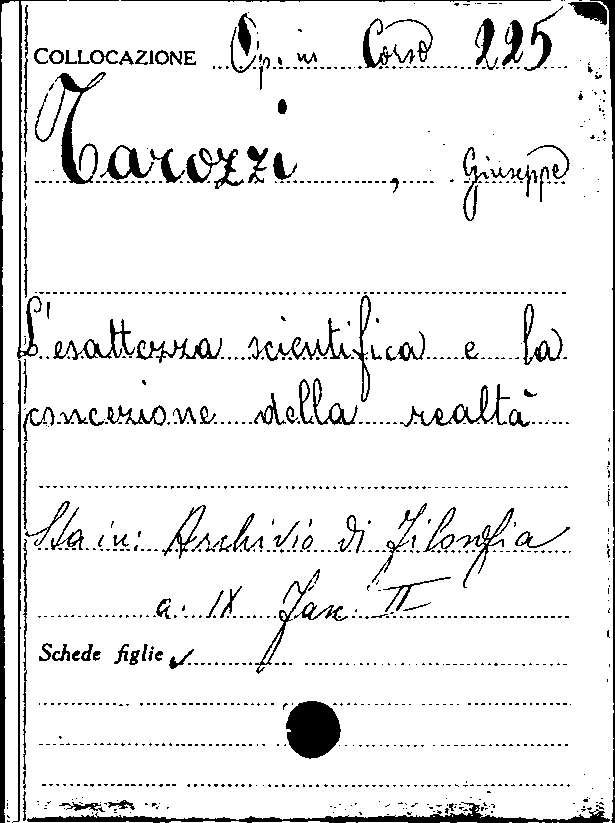 COLLOCAZIONE Op. in Corso 225
Tarozzi, Giuseppe
L'esattezza scientifica e la
concezione della realtà
Sta in: Archivio di Filosofia
a. IX Fasc. II
Schede figlie ✓